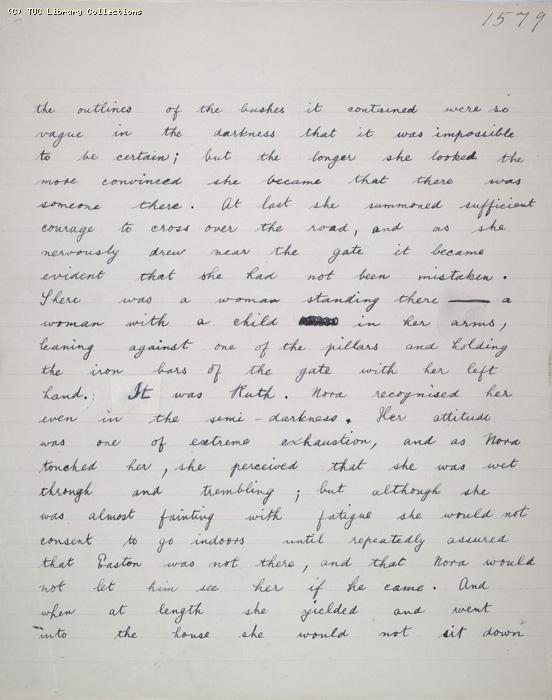 (C) TUC Library Collections
1579
the outlines of the bushes it contained were so
vague in the darkness that it was impossible
to be certain; but the longer she looked the
more convinced she became that there was
someone there. At last she summoned sufficient
courage to cross over the road, and as she
nervously drew near the gate it became
evident that she had not been mistaken.
There was a woman standing there — a
woman with a child in her arms,
leaning against one of the pillars and holding
the iron bars of the gate with her left
hand. It was Ruth. Nora recognised her
even in the semi-darkness. Her attitude
was one of extreme exhaustion, and as Nora
touched her, she perceived that she was wet
through and trembling; but although she
was almost fainting with fatigue she would not
consent to go indoors until repeatedly assured
that Easton was not there, and that Nora would
not let him see her if he came. And
when at length she yielded and went
into the house she would not sit down